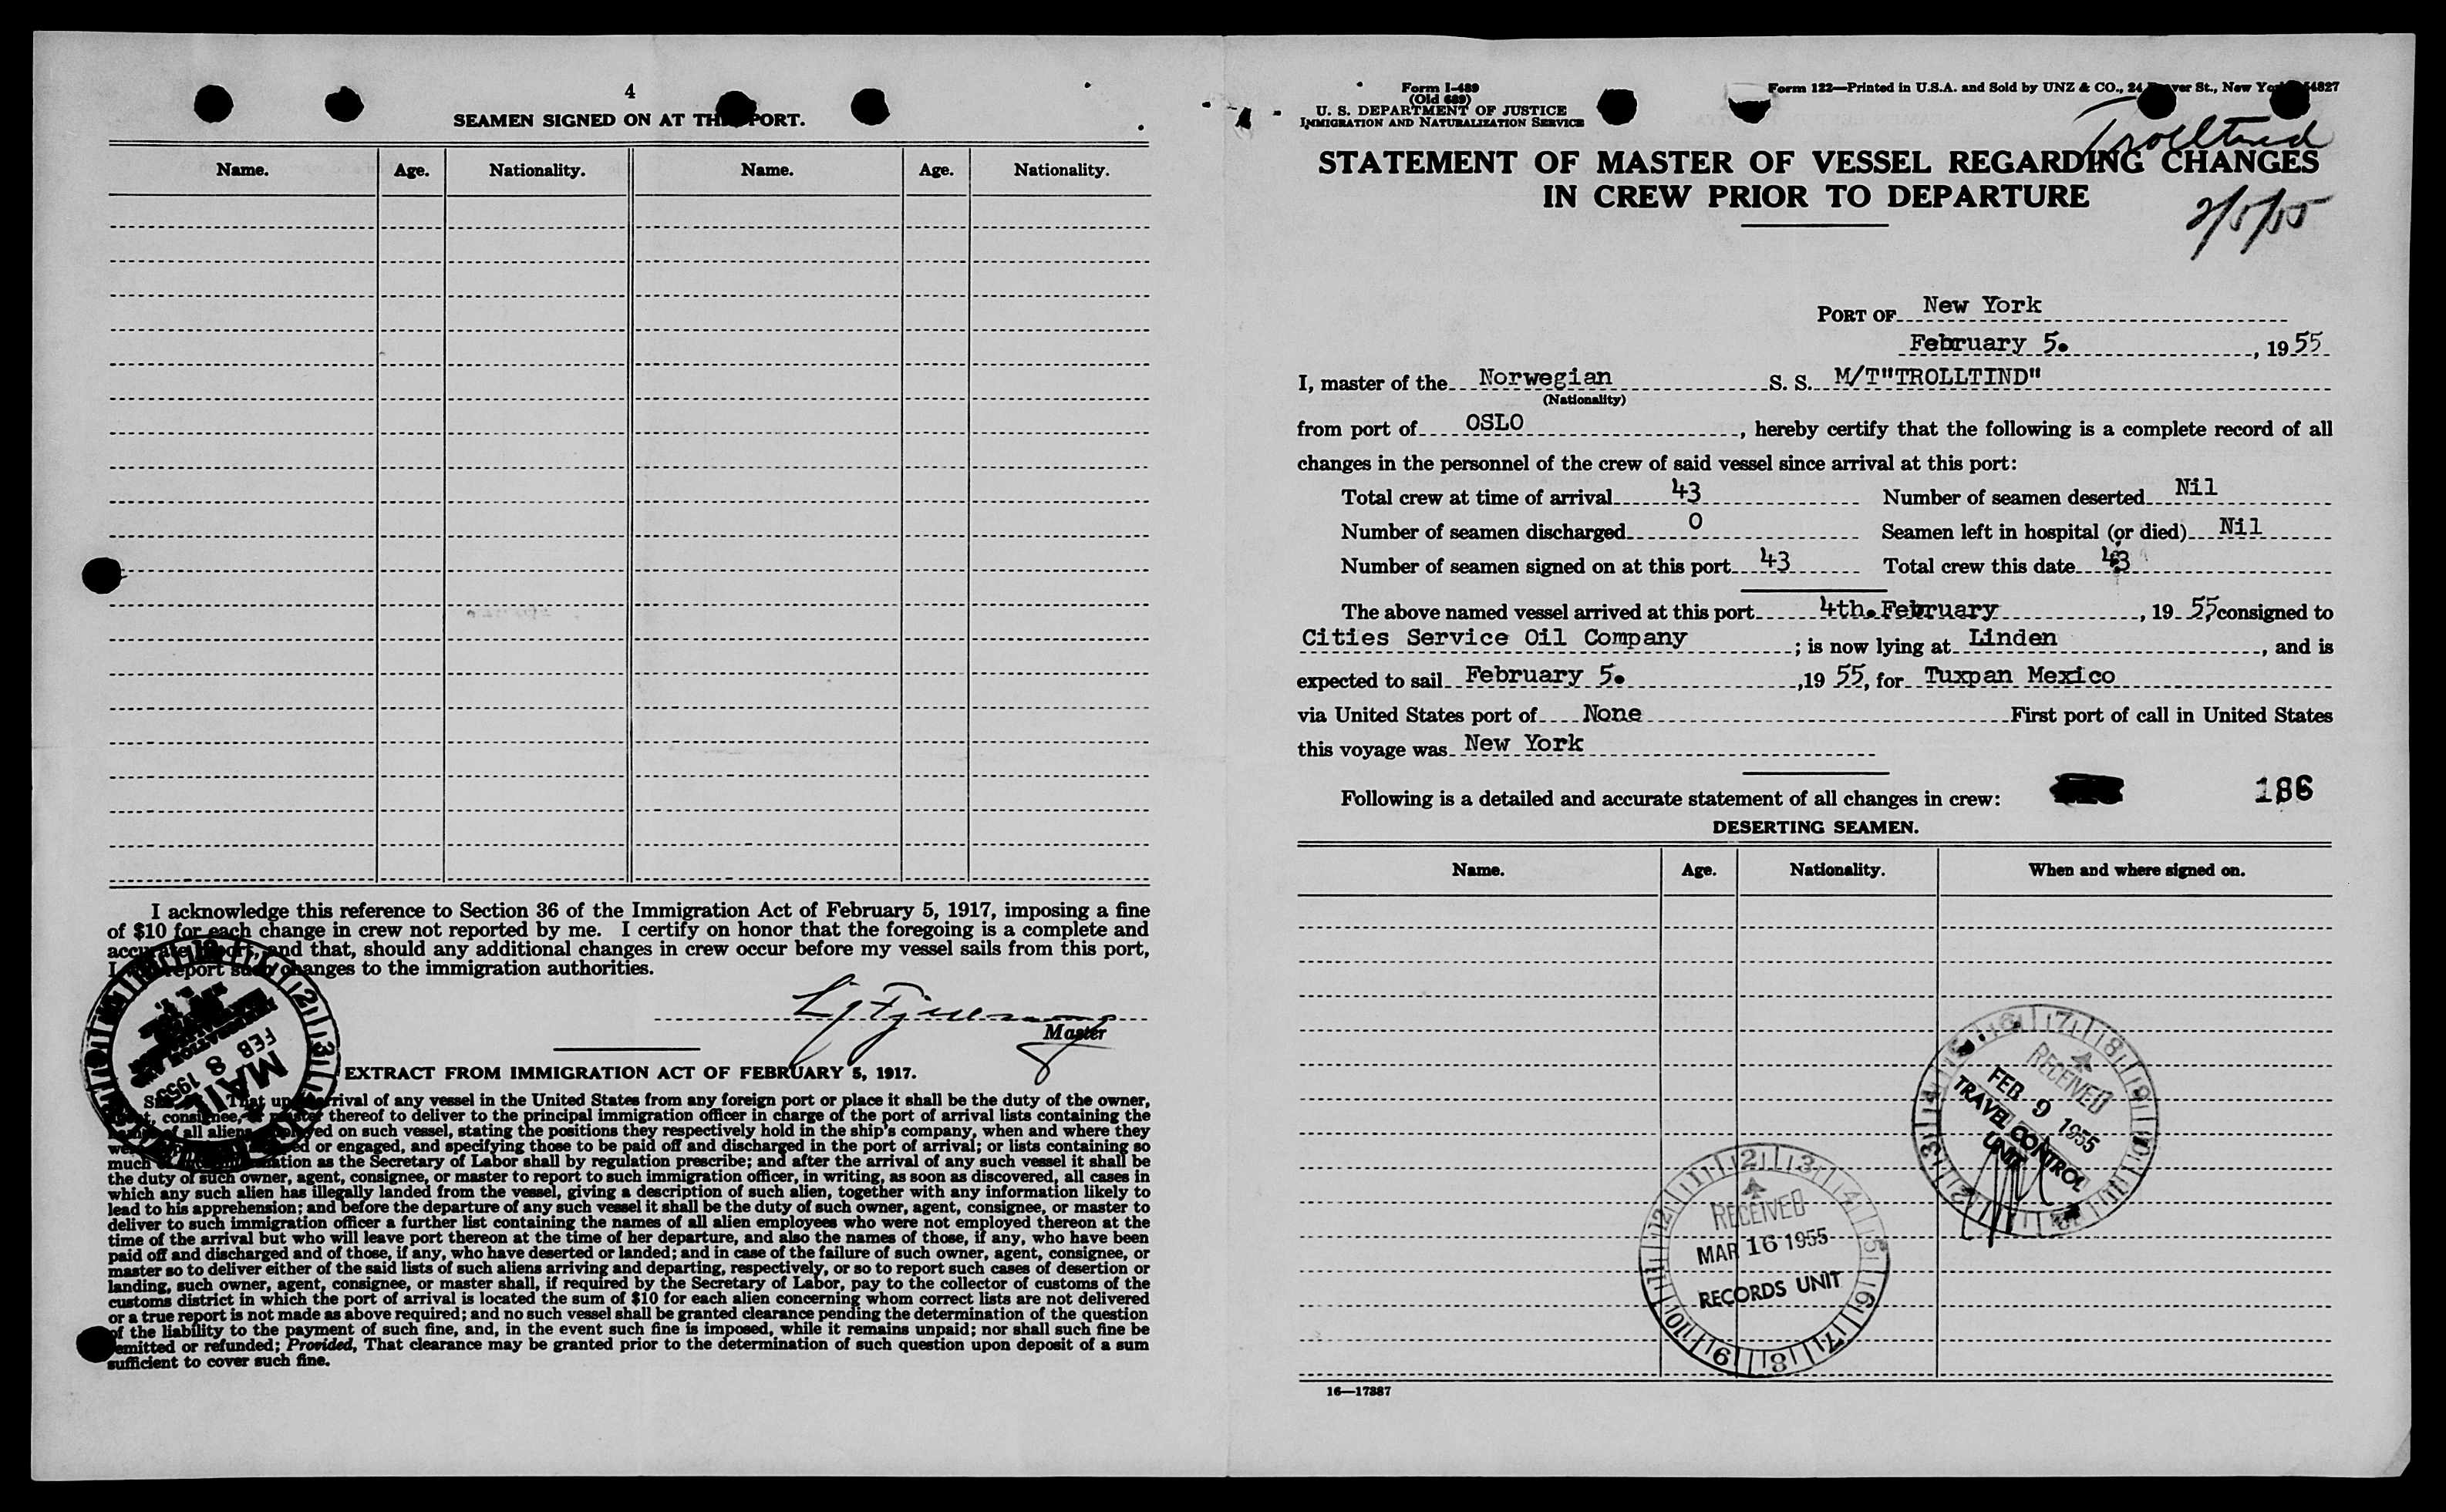 4
SEAMEN SIGNED ON AT THIS PORT.
Name. Age. Nationality. Name. Age. Nationality.
I acknowledge this reference to Section 36 of the Immigration Act of February 5, 1917, imposing a fine
of $10 for each change in crew not reported by me. I certify on honor that the foregoing is a complete and
accurate report, and that, should any additional changes in crew occur before my vessel sails from this port,
I will report such changes to the immigration authorities.
Master
EXTRACT FROM IMMIGRATION ACT OF FEBRUARY 5, 1917.
That upon arrival of any vessel in the United States from any foreign port or place it shall be the duty of the owner,
consignee, or master thereof to deliver to the principal immigration officer in charge of the port of arrival lists containing the
of all aliens employed on such vessel, stating the positions they respectively hold in the ship's company, when and where they
or engaged, and specifying those to be paid off and discharged in the port of arrival; or lists containing so
much information as the Secretary of Labor shall by regulation prescribe; and after the arrival of any such vessel it shall be
the duty of such owner, agent, consignee, or master to report to such immigration officer, in writing, as soon as discovered, all cases in
which any such alien has illegally landed from the vessel, giving a description of such alien, together with any information likely to
lead to his apprehension; and before the departure of any such vessel it shall be the duty of such owner, agent, consignee, or master to
deliver to such immigration officer a further list containing the names of all alien employees who were not employed thereon at the
time of the arrival but who will leave port thereon at the time of her departure, and also the names of those, if any, who have been
paid off and discharged and of those, if any, who have deserted or landed; and in case of the failure of such owner, agent, consignee, or
master so to deliver either of the said lists of such aliens arriving and departing, respectively, or so to report such cases of desertion or
landing, such owner, agent, consignee, or master shall, if required by the Secretary of Labor, pay to the collector of customs of the
customs district in which the port of arrival is located the sum of $10 for each alien concerning whom correct lists are not delivered
or a true report is not made as above required; and no such vessel shall be granted clearance pending the determination of the question
of the liability to the payment of such fine, and, in the event such fine is imposed, while it remains unpaid; nor shall such fine be
remitted or refunded; Provided, That clearance may be granted prior to the determination of such question upon deposit of a sum
sufficient to cover such fine.
FEB 8 1955
MAIL
Form I-489
(Old 689)
U. S. DEPARTMENT OF JUSTICE
IMMIGRATION AND NATURALIZATION SERVICE
Form 122—Printed in U.S.A. and Sold by UNZ & CO., 24 Beaver St., New York 54827
Trolltind
STATEMENT OF MASTER OF VESSEL REGARDING CHANGES
IN CREW PRIOR TO DEPARTURE
2/5/55
PORT OF New York
February 5. , 19 55
I, master of the Norwegian S. S. M/T"TROLLTIND"
(Nationality)
from port of OSLO , hereby certify that the following is a complete record of all
changes in the personnel of the crew of said vessel since arrival at this port:
Total crew at time of arrival 43 Number of seamen deserted Nil
Number of seamen discharged 0 Seamen left in hospital (or died) Nil
Number of seamen signed on at this port 43 Total crew this date 43
The above named vessel arrived at this port 4th. February , 19 55 consigned to
Cities Service Oil Company ; is now lying at Linden , and is
expected to sail February 5. ,19 55, for Tuxpan Mexico
via United States port of None First port of call in United States
this voyage was New York
Following is a detailed and accurate statement of all changes in crew: 186
DESERTING SEAMEN.
Name. Age. Nationality. When and where signed on.
RECEIVED
FEB 9 1955
TRAVEL CONTROL
UNIT
RECEIVED
MAR 16 1955
RECORDS UNIT
16—17887